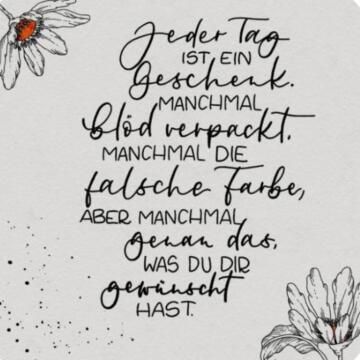 Jeder Tag
IST EIN
Geschenk.
MANCHMAL
blöd verpackt.
MANCHMAL DIE
falsche Farbe,
ABER MANCHMAL
genau das,
WAS DU DIR
gewünscht
HAST.